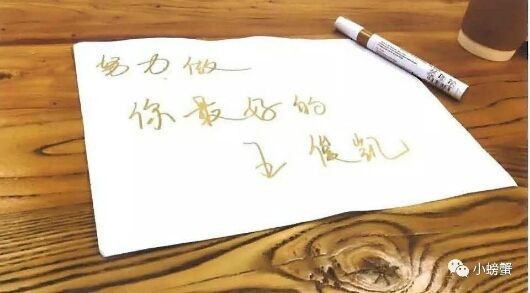 努力做
你最好的
王俊凯
小螃蟹